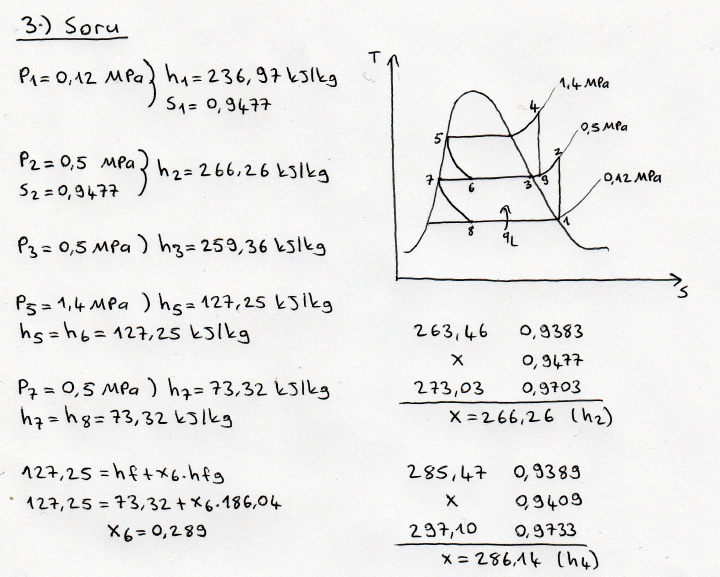 3.) Soru
P1=0,12 MPa } h1=236,97 kJ/kg
S1=0,9477
P2=0,5 MPa
S2=0,9477 } h2=266,26 kJ/kg
P3=0,5 MPa ) h3=259,36 kJ/kg
P5=1,4 MPa ) h5=127,25 kJ/kg
h5=h6=127,25 kJ/kg
P7=0,5 MPa ) h7=73,32 kJ/kg
h7=h8=73,32 kJ/kg
127,25=hf+x6.hfg
127,25=73,32+x6.186,04
x6=0,289
T
1,4 MPa
4
0,5 MPa
5
2
7
6
3
9
0,12 MPa
8
qL
1
S
263,46 0,9383
x 0,9477
273,03 0,9703
x=266,26 (h2)
285,47 0,9389
x 0,9409
297,10 0,9733
x=286,14 (h4)